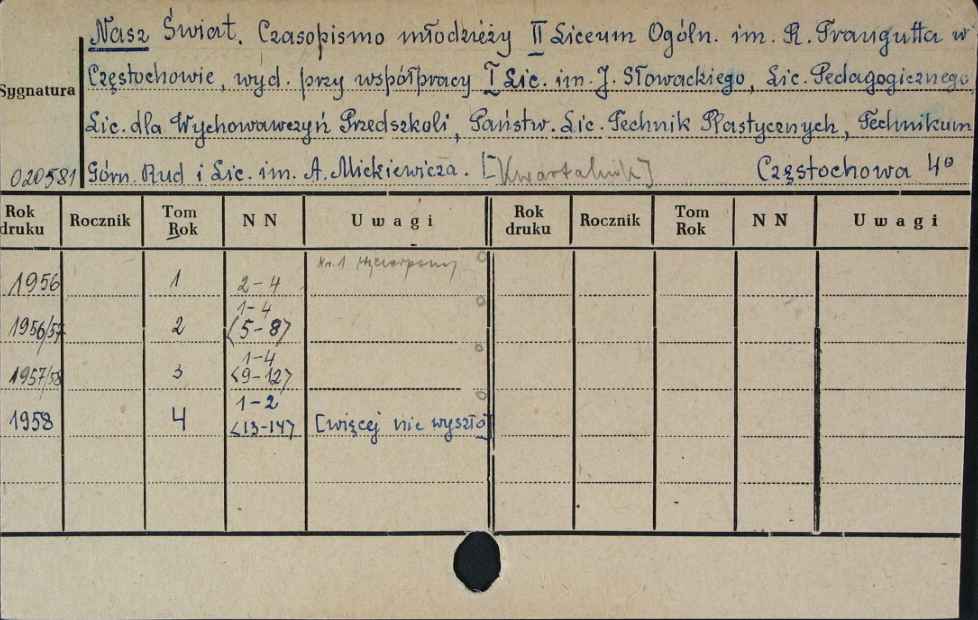 Nasz Świat. Czasopismo młodzieży II Liceum Ogóln. im. R. Traugutta w
Częstochowie, wyd. przy współpracy I Lic. im. J. Słowackiego, Lic. Pedagogicznego
Sygnatura
Lic. dla Wychowawczyń Przedszkoli, Państw. Lic. Technik Plastycznych, Technikum
020581 Górn. Rud i Lic. im. A. Mickiewicza. [Kwartalnik] Częstochowa 4°
Rok druku Rocznik Tom Rok N N Uwagi Rok druku Rocznik Tom Rok N N Uwagi
Nr. 1 wyczerpany
1956 1 2-4
1-4
1956/57 2 <5-8>
1-4
1957/58 3 <9-12>
1-2
1958 4 <13-14> [więcej nie wyszło]